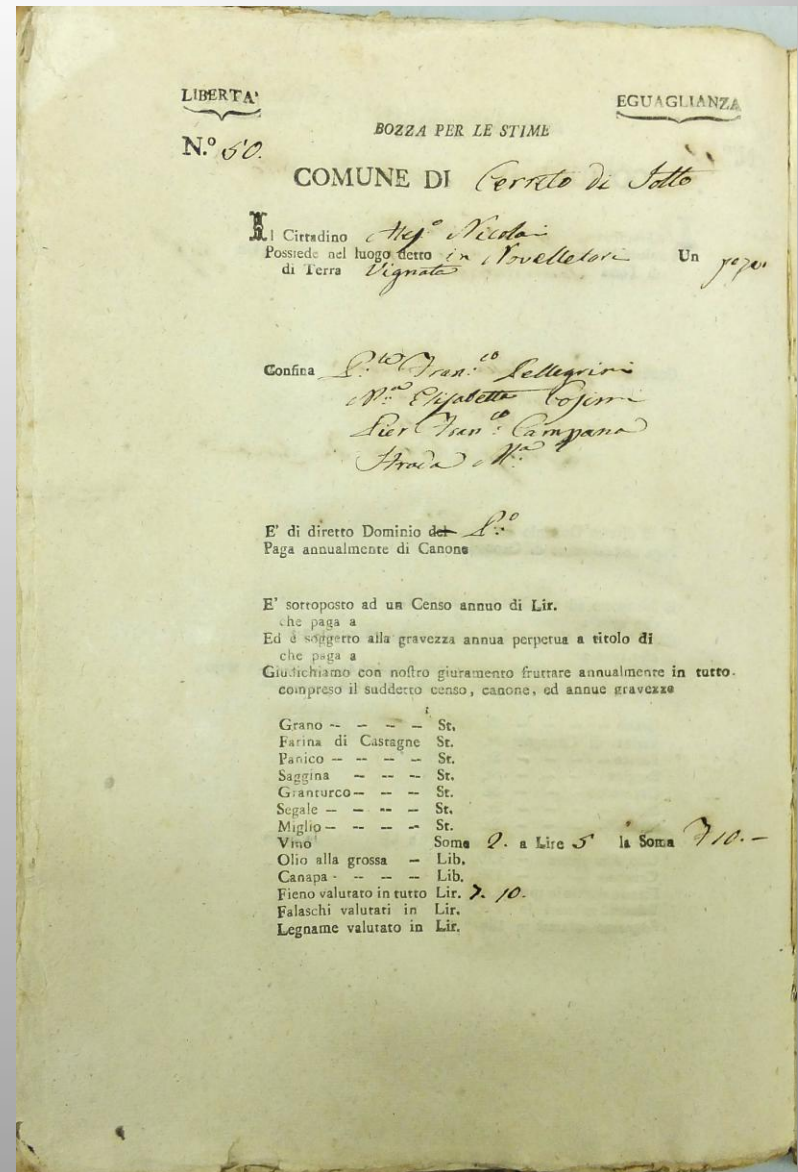 LIBERTA'
EGUAGLIANZA
BOZZA PER LE STIME
N.º 50.
COMUNE DI Cerreto di Sotto
Il Cittadino Nicolai
Possiede nel luogo detto in Un
di Terra Vignata
Confina Fran:co Pellegrini
Elisabetta
Pier Fran:co Campana
Strada
E' di diretto Dominio del
Paga annualmente di Canone
E' sottoposto ad un Censo annuo di Lir.
che paga a
Ed è soggetto alla gravezza annua perpetua a titolo di
che paga a
Giudichiamo con nostro giuramento fruttare annualmente in tutto.
compreso il suddetto censo, canone, ed annue gravezze
Grano -- — — — St.
Farina di Castagne St.
Panico — — — — St.
Saggina — — — St.
Granturco — — — St.
Segale — — — — St.
Miglio — — — — St.
Vino Some 2. a Lire 5 la Soma 10.-
Olio alla grossa — Lib.
Canapa - — — — Lib.
Fieno valutato in tutto Lir. 10.
Falaschi valutati in Lir.
Legname valutato in Lir.